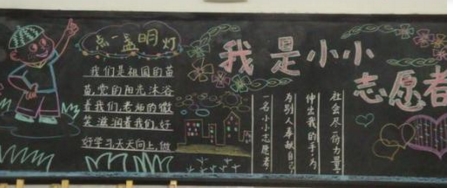 点一盏明灯
我们是祖国的苗
苗,党的阳光沐浴
着我们,老师的微
笑滋润着我们,好
好学习天天向上,做
我是小小
志愿者
社会尽一份力量
伸出我的手为
为别人奉献自己
名小小志愿者